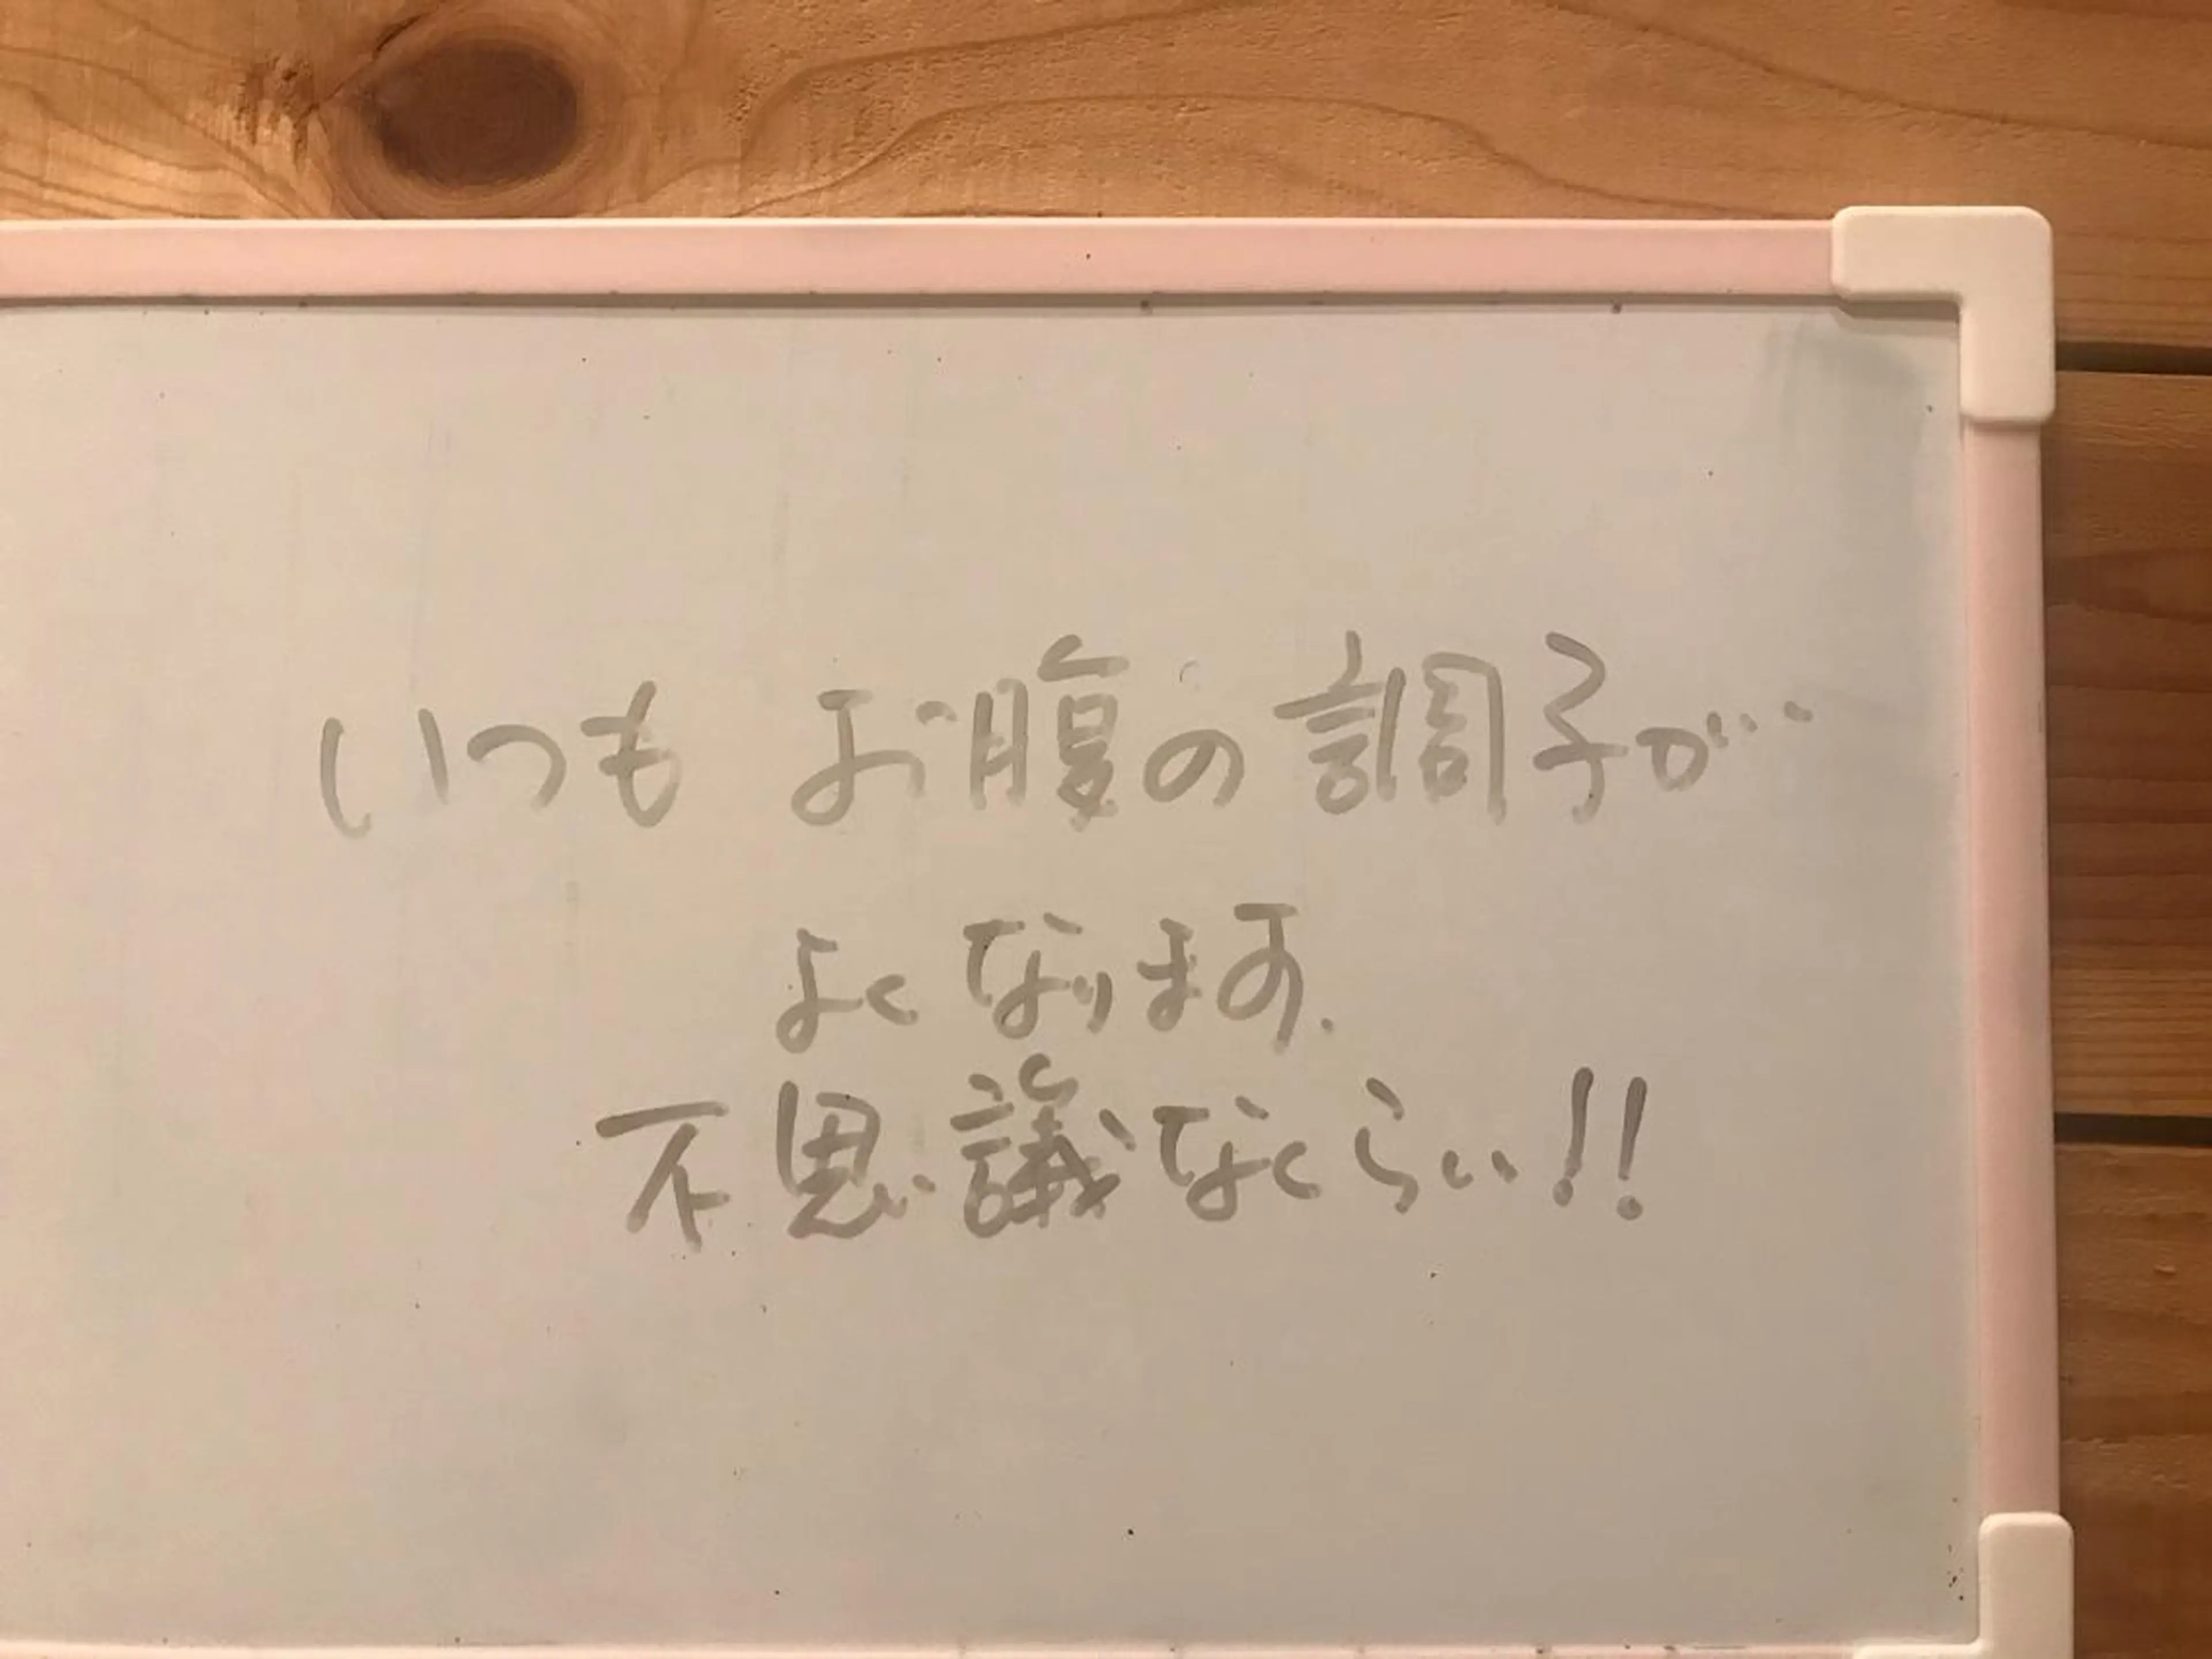 いつも お腹の調子が…
よくなります.
不思議なくらい!!